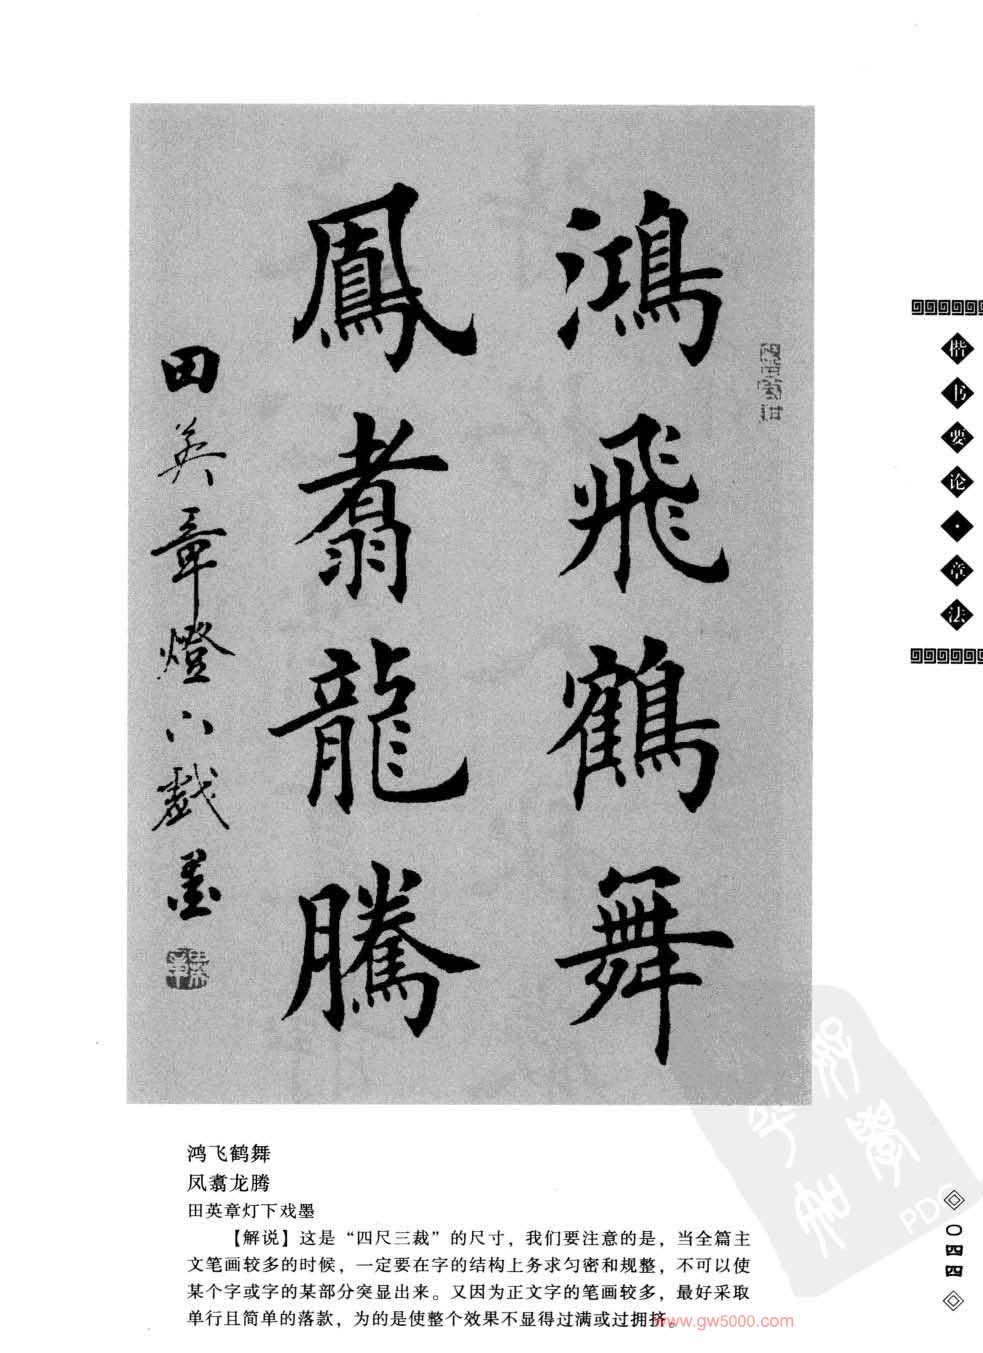 鴻飛鶴舞
鳳翥龍騰
田英章燈下戲墨
楷书要论·章法
鸿飞鹤舞
凤翥龙腾
田英章灯下戏墨
【解说】这是“四尺三裁”的尺寸，我们要注意的是，当全篇主
文笔画较多的时候，一定要在字的结构上务求匀密和规整，不可以使
某个字或字的某部分突显出来。又因为正文字的笔画较多，最好采取
单行且简单的落款，为的是使整个效果不显得过满或过拥挤。
www.gw5000.com
〇四四
PDG